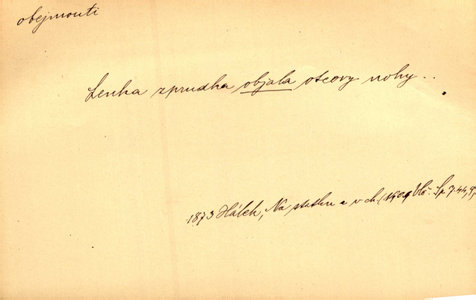 obejmouti
Lenka zprudka objala otcovy nohy..
1873 Hálek, Na statku a v ch. (1924